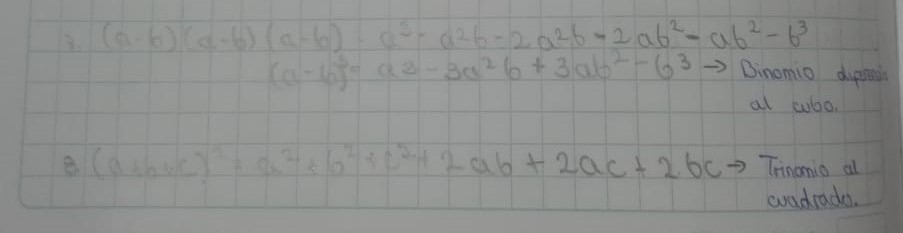 (a-b)(a-b)(a-b) = a³ - a²b - 2a²b + 2ab² - ab² - b³
(a-b)³ = a3 - 3a²b + 3ab² - b3 → Binomio
al cubo.
8 (a+b+c)² = a² + b² + c² + 2ab + 2ac + 2bc → Trinomio al
cuadrado.